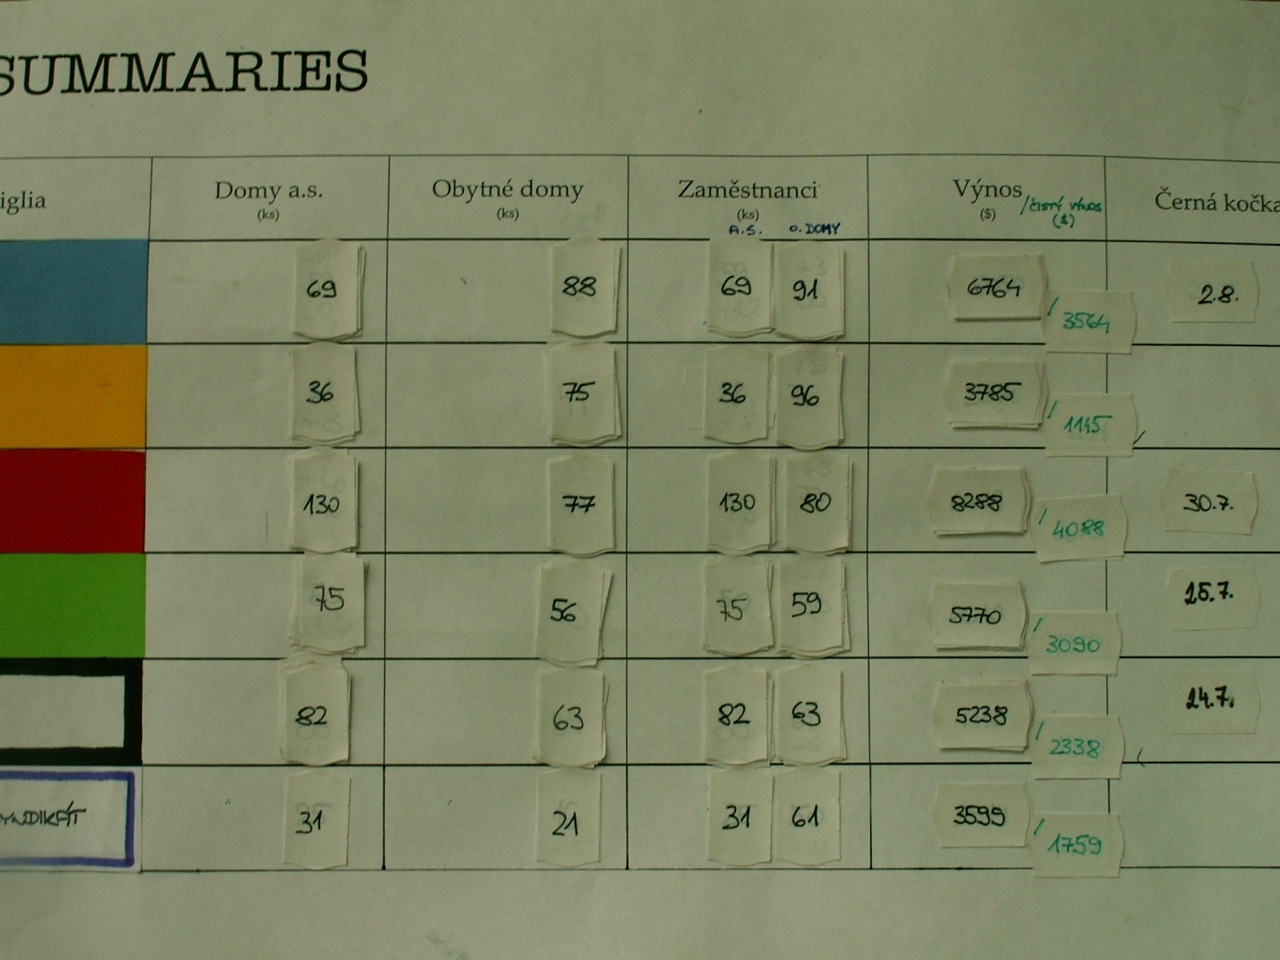 SUMMARIES
iglia Domy a.s. Obytné domy Zaměstnanci Výnos /čistý výnos Černá kočka
(ks) (ks) (ks) ($) ($)
A.S. O. DOMY
69 88 69 91 6764 /3564 2.8.
36 75 36 96 3785 /1145
130 77 130 80 8288 /4088 30.7.
75 56 75 59 5770 /3090 25.7.
82 63 82 63 5238 /2338 24.7.
YNDIKÁT 31 21 31 61 3599 /1759